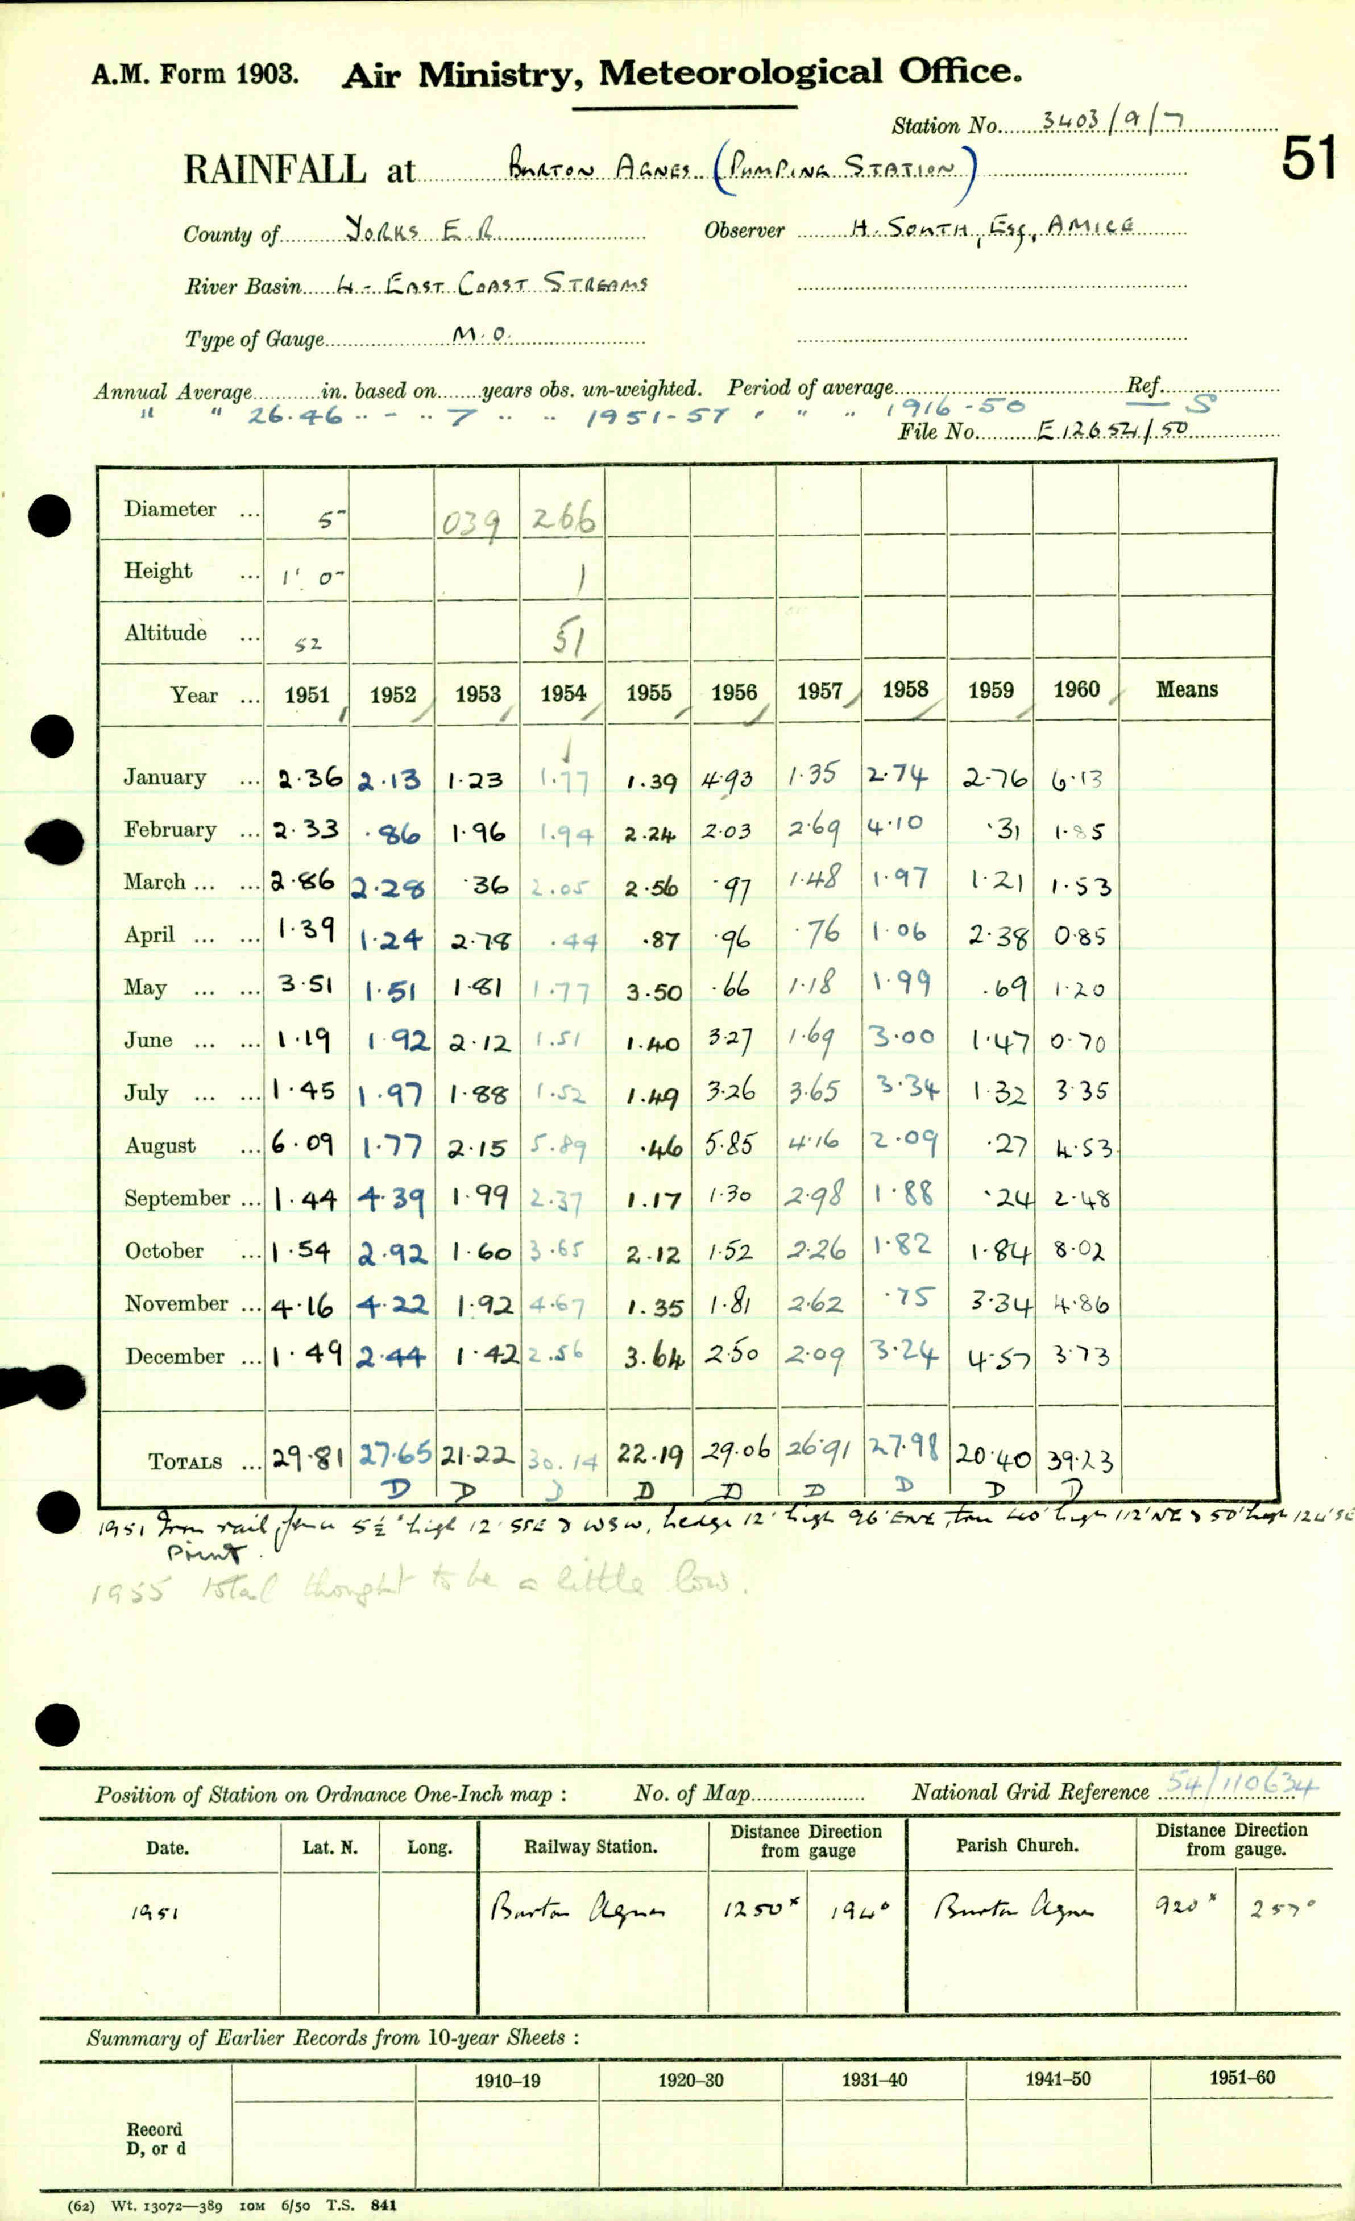 A.M. Form 1903. Air Ministry, Meteorological Office.
Station No. 3403/9/7
51
RAINFALL at BURTON AGNES (PUMPING STATION)
County of YORKS E.R. Observer H. SOUTH, Esq, AMICE
River Basin 4 - EAST COAST STREAMS
Type of Gauge M.O.
Annual Average in. based on years obs. un-weighted. Period of average Ref.
" " 26.46 " - " 7 " " 1951-57 " " " 1916-50 — S
File No. E 12654/50
Diameter ... 5" 039 266
Height ... 1' 0" 1
Altitude ... 52 51
Year ... 1951 1952 1953 1954 1955 1956 1957 1958 1959 1960 Means
January ... 2.36 2.13 1.23 1.77 1.39 4.93 1.35 2.74 2.76 6.13
February ... 2.33 .86 1.96 1.94 2.24 2.03 2.69 4.10 .31 1.85
March ... ... 2.86 2.28 .36 2.05 2.56 .97 1.48 1.97 1.21 1.53
April ... ... 1.39 1.24 2.78 .44 .87 .96 .76 1.06 2.38 0.85
May ... ... 3.51 1.51 1.81 1.77 3.50 .66 1.18 1.99 .69 1.20
June ... ... 1.19 1.92 2.12 1.51 1.40 3.27 1.69 3.00 1.47 0.70
July ... ... 1.45 1.97 1.88 1.52 1.49 3.26 3.65 3.34 1.32 3.35
August ... 6.09 1.77 2.15 5.89 .46 5.85 4.16 2.09 .27 4.53
September ... 1.44 4.39 1.99 2.37 1.17 1.30 2.98 1.88 .24 2.48
October ... 1.54 2.92 1.60 3.65 2.12 1.52 2.26 1.82 1.84 8.02
November ... 4.16 4.22 1.92 4.67 1.35 1.81 2.62 .75 3.34 4.86
December ... 1.49 2.44 1.42 2.56 3.64 2.50 2.09 3.24 4.57 3.73
TOTALS ... 29.81 27.65 21.22 30.14 22.19 29.06 26.91 27.98 20.40 39.23
D D D D D D D D D
1951 Iron rail, 5½" high 12' SSE & WSW, hedge 12' high 96' ENE, tree 40' high 112' NE & 50' high 124' SE
Point.
1955 total thought to be a little low.
Position of Station on Ordnance One-Inch map : No. of Map National Grid Reference 54/110634
Date. Lat. N. Long. Railway Station. Distance from Direction gauge Parish Church. Distance from Direction gauge.
1951 Burton Agnes 1250ˣ 194° Burton Agnes 920ˣ 257°
Summary of Earlier Records from 10-year Sheets :
1910–19 1920–30 1931–40 1941–50 1951–60
Record
D, or d
(62) Wt. 13072—389 10M 6/50 T.S. 841